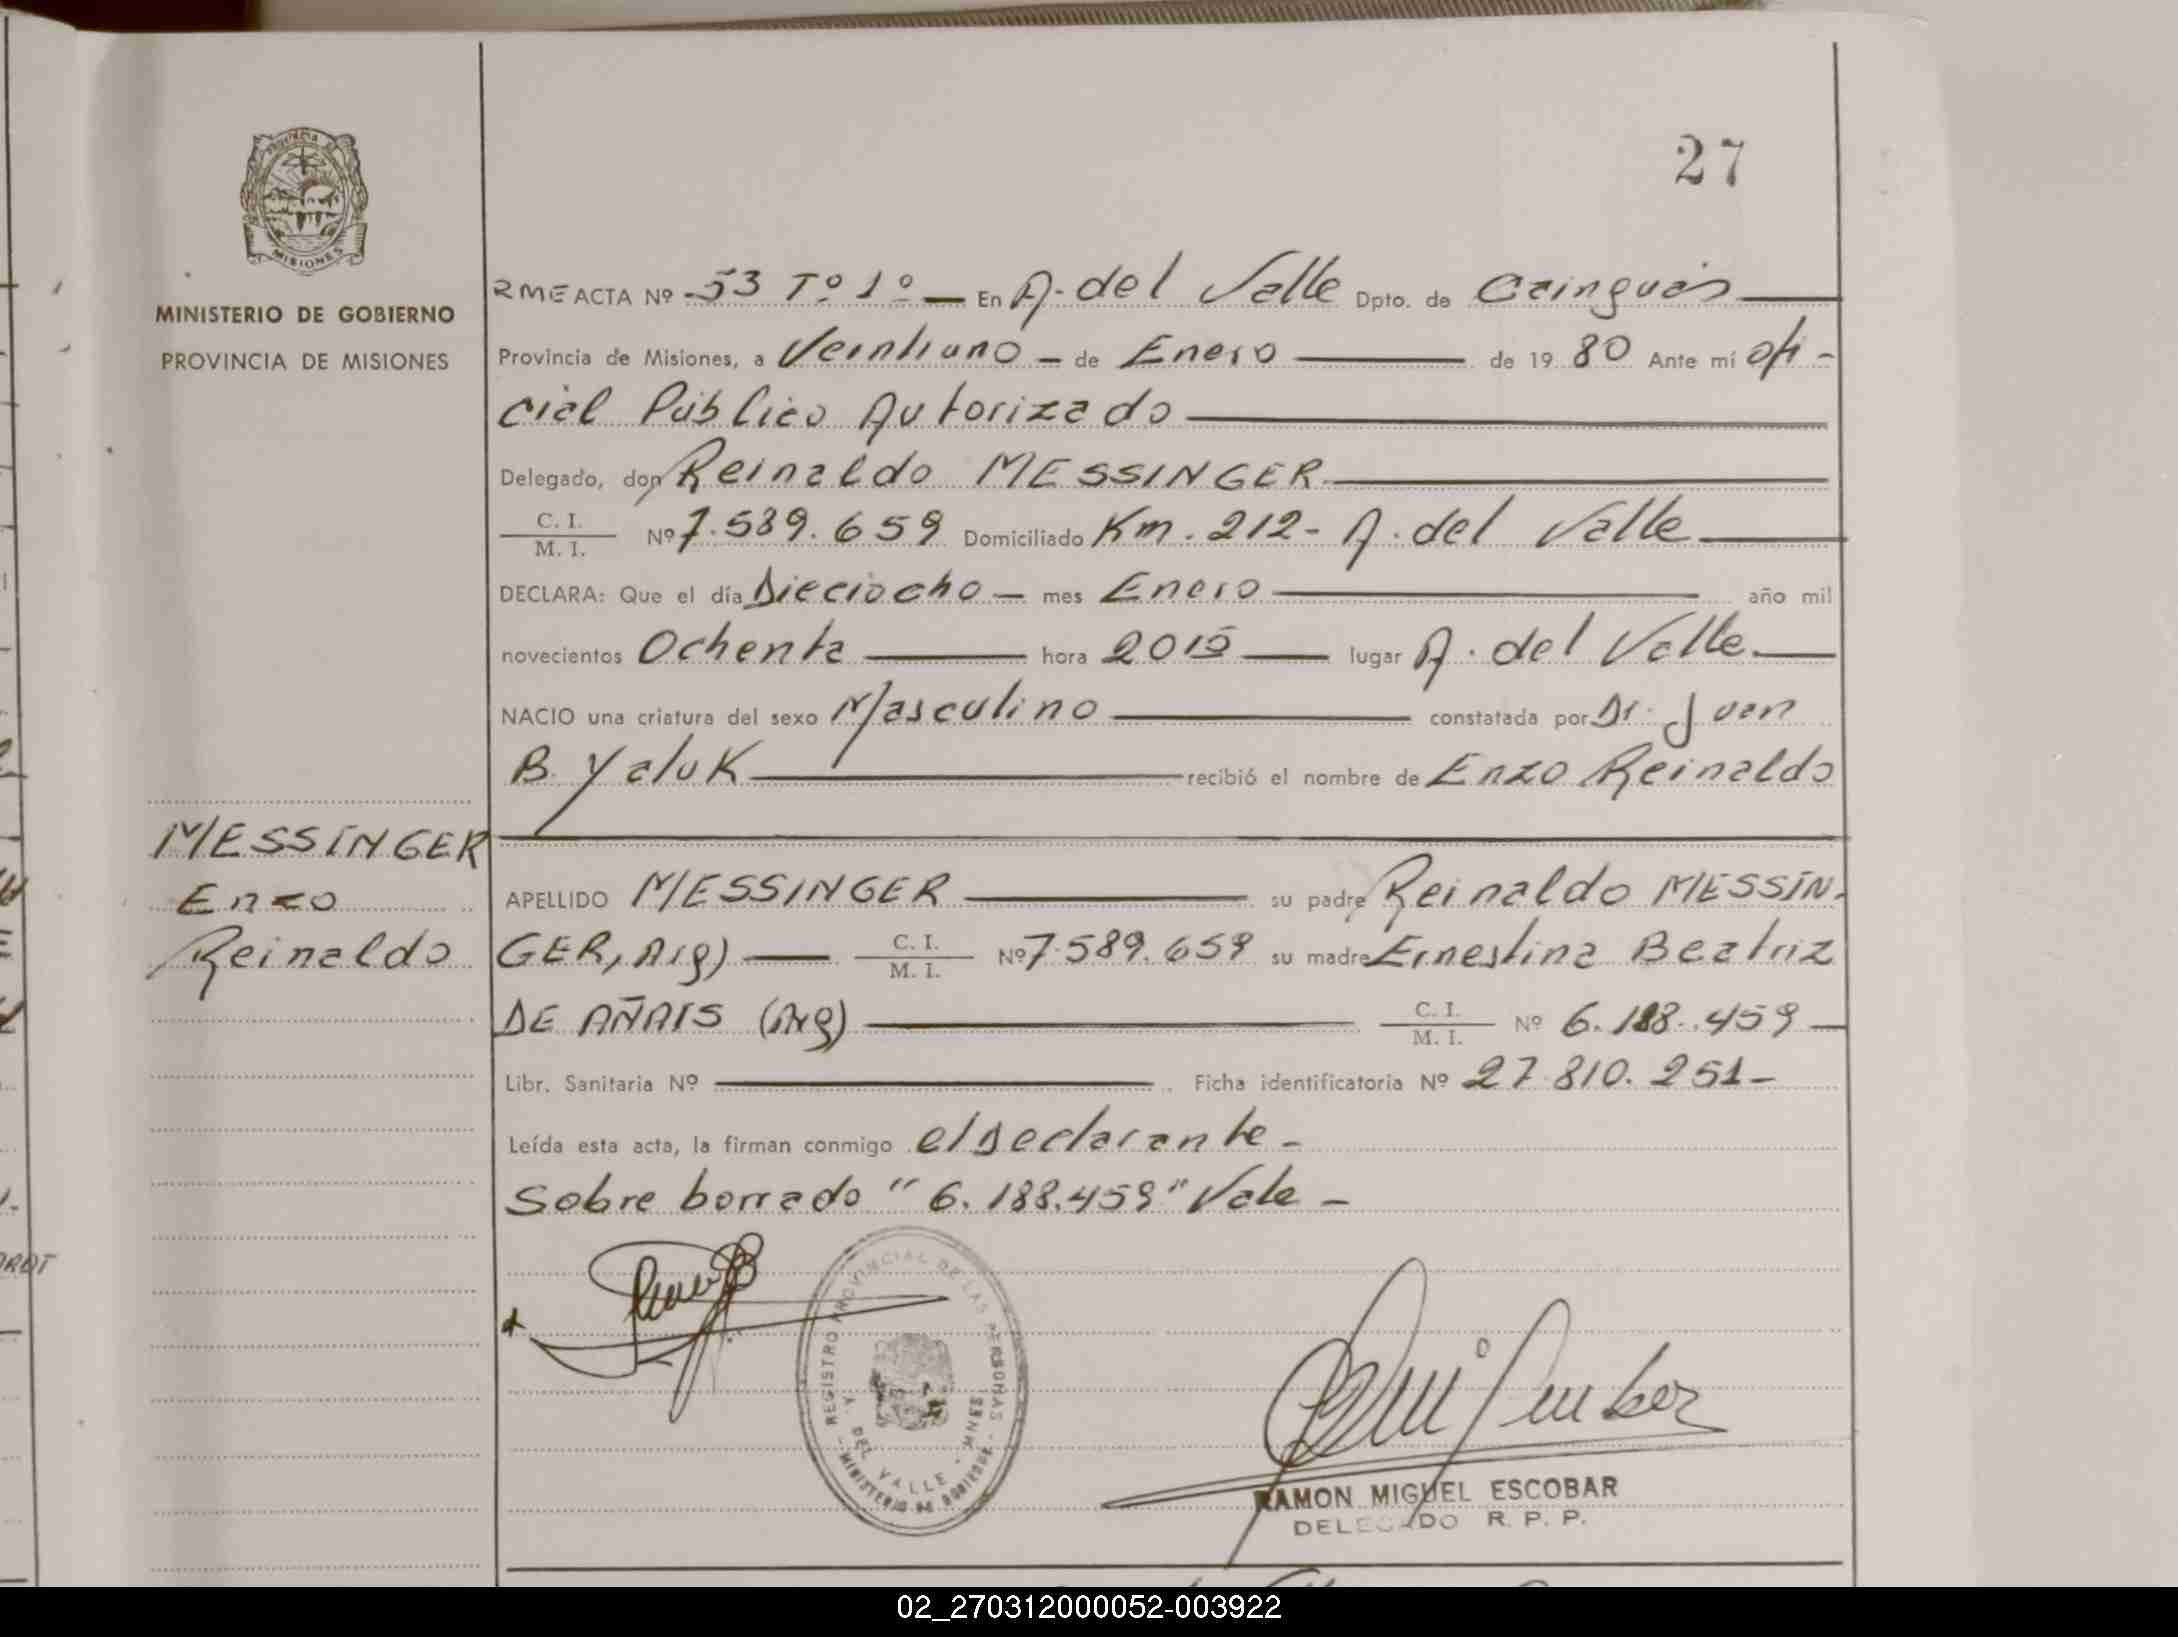 27
PROVINCIA DE
MISIONES
MINISTERIO DE GOBIERNO
PROVINCIA DE MISIONES
RME ACTA Nº 53 Tº 1º — En A. del Valle Dpto. de Cainguás
Provincia de Misiones, a Veintiuno — de Enero de 19 80 Ante mí ofi-
cial Público Autorizado
Delegado, don Reinaldo MESSINGER
C. I.
M. I.
Nº 7.589.659 Domiciliado Km. 212 - A. del Valle
DECLARA: Que el día Dieciocho — mes Enero año mil
novecientos Ochenta hora 2015 lugar A. del Valle.
NACIO una criatura del sexo Masculino constatada por Dr. Juan
B. Yaluk recibió el nombre de Enzo Reinaldo
MESSINGER
Enzo
Reinaldo
APELLIDO MESSINGER su padre Reinaldo MESSIN-
GER, Arg) — C. I. M. I. Nº 7.589.659 su madre Ernestina Beatriz
DE AÑAIS (Arg) C. I. M. I. Nº 6.188.459 —
Libr. Sanitaria Nº Ficha identificatoria Nº 27.810.251-
Leída esta acta, la firman conmigo el Declarante -
Sobre borrado "6.188.459" Vale -
REGISTRO PROVINCIAL DE LAS PERSONAS
A. DEL VALLE - MNES
MINISTERIO DE GOBIERNO
RAMON MIGUEL ESCOBAR
DELEGADO R. P. P.
02_270312000052-003922